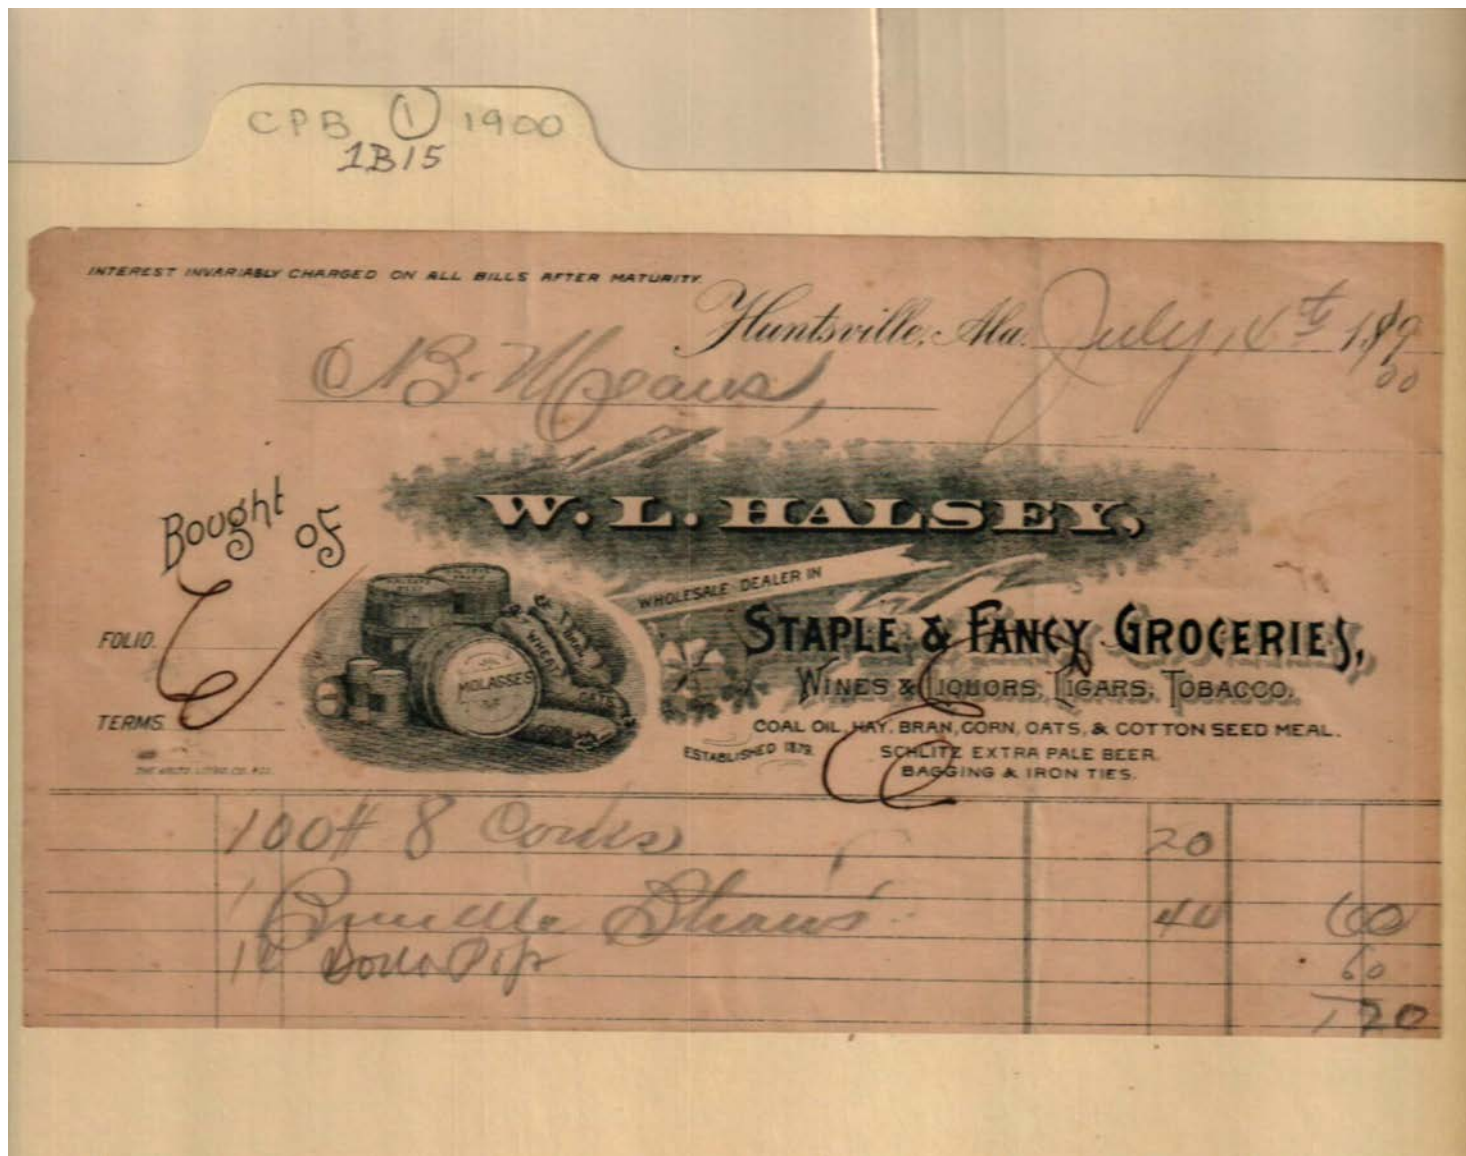 CPB 1 1900
1B15
INTEREST INVARIABLY CHARGED ON ALL BILLS AFTER MATURITY.
Huntsville, Ala. July 4th 189
00
B. Means,
Bought of
W. L. HALSEY,
WHOLESALE DEALER IN
STAPLE & FANCY GROCERIES,
WINES & LIQUORS, CIGARS, TOBACCO,
COAL OIL, HAY, BRAN, CORN, OATS, & COTTON SEED MEAL.
ESTABLISHED 1879.
SCHLITZ EXTRA PALE BEER.
BAGGING & IRON TIES.
FOLIO.
TERMS.
MOLASSES
WHEAT
OATS
100# 8 20
1 Bundle Straws 40 60
Pop 60
1 20